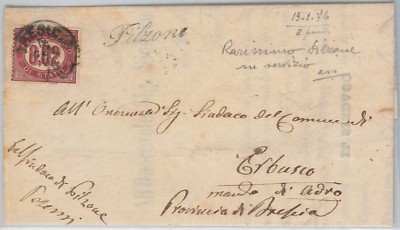 13.1.76
Pilzone
Rarissimo Pilzone
su servizio
0.02
DI STATO
All' Onorevole Sig. Sindaco del Comune di
Erbusco
mand. di Adro
Provincia di Brescia
Il Sindaco di Pilzone